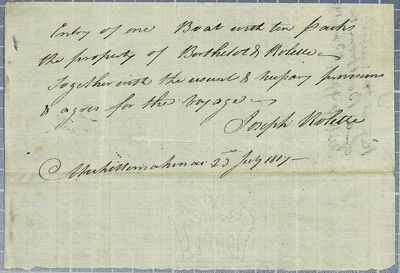 Entry of one Boat with ten Packs
the property of Berthelot & Rolette
Together with the usual & necessary provisions
& agres for the voyage
Joseph Rolette
Michilimackinac 23 July 1817